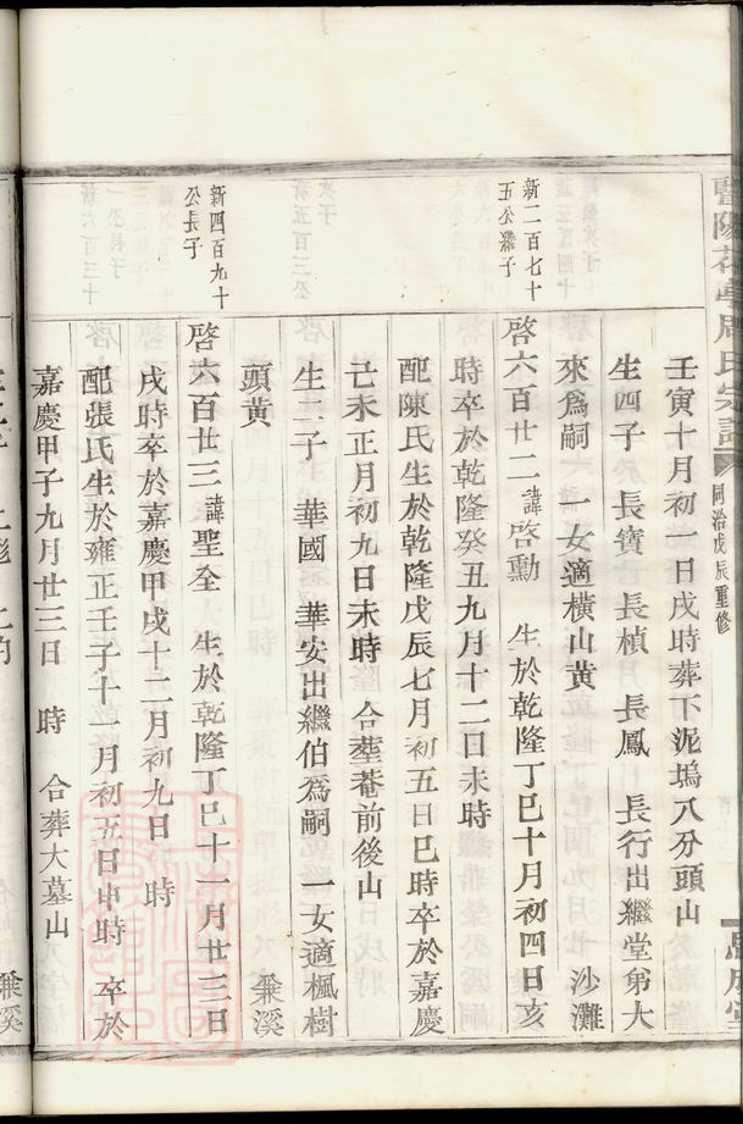 暨陽花亭周氏宗譜
同治戊辰重修
壬寅十月初一日戌時葬下泥塢八分頭山
生四子　長寶　長楨　長鳳　長行出繼堂弟大
來爲嗣　一女適橫山黄　沙灘
新二百七十
五公繼子
啓六百廿二諱啓勳　生於乾隆丁巳十月初四日亥
時卒於乾隆癸丑九月十二日未時
配陳氏生於乾隆戊辰七月初五日巳時卒於嘉慶
己未正月初九日未時　合塟菴前後山
生二子　華國　華安出繼伯爲嗣　一女適楓樹
頭黄　兼溪
新四百九十
公長子
啓六百廿三諱聖全　生於乾隆丁巳十一月廿三日
戌時卒於嘉慶甲戌十二月初九日　時
配張氏生於雍正壬子十一月初五日申時　卒於
嘉慶甲子九月廿三日　時　合葬大墓山
兼溪